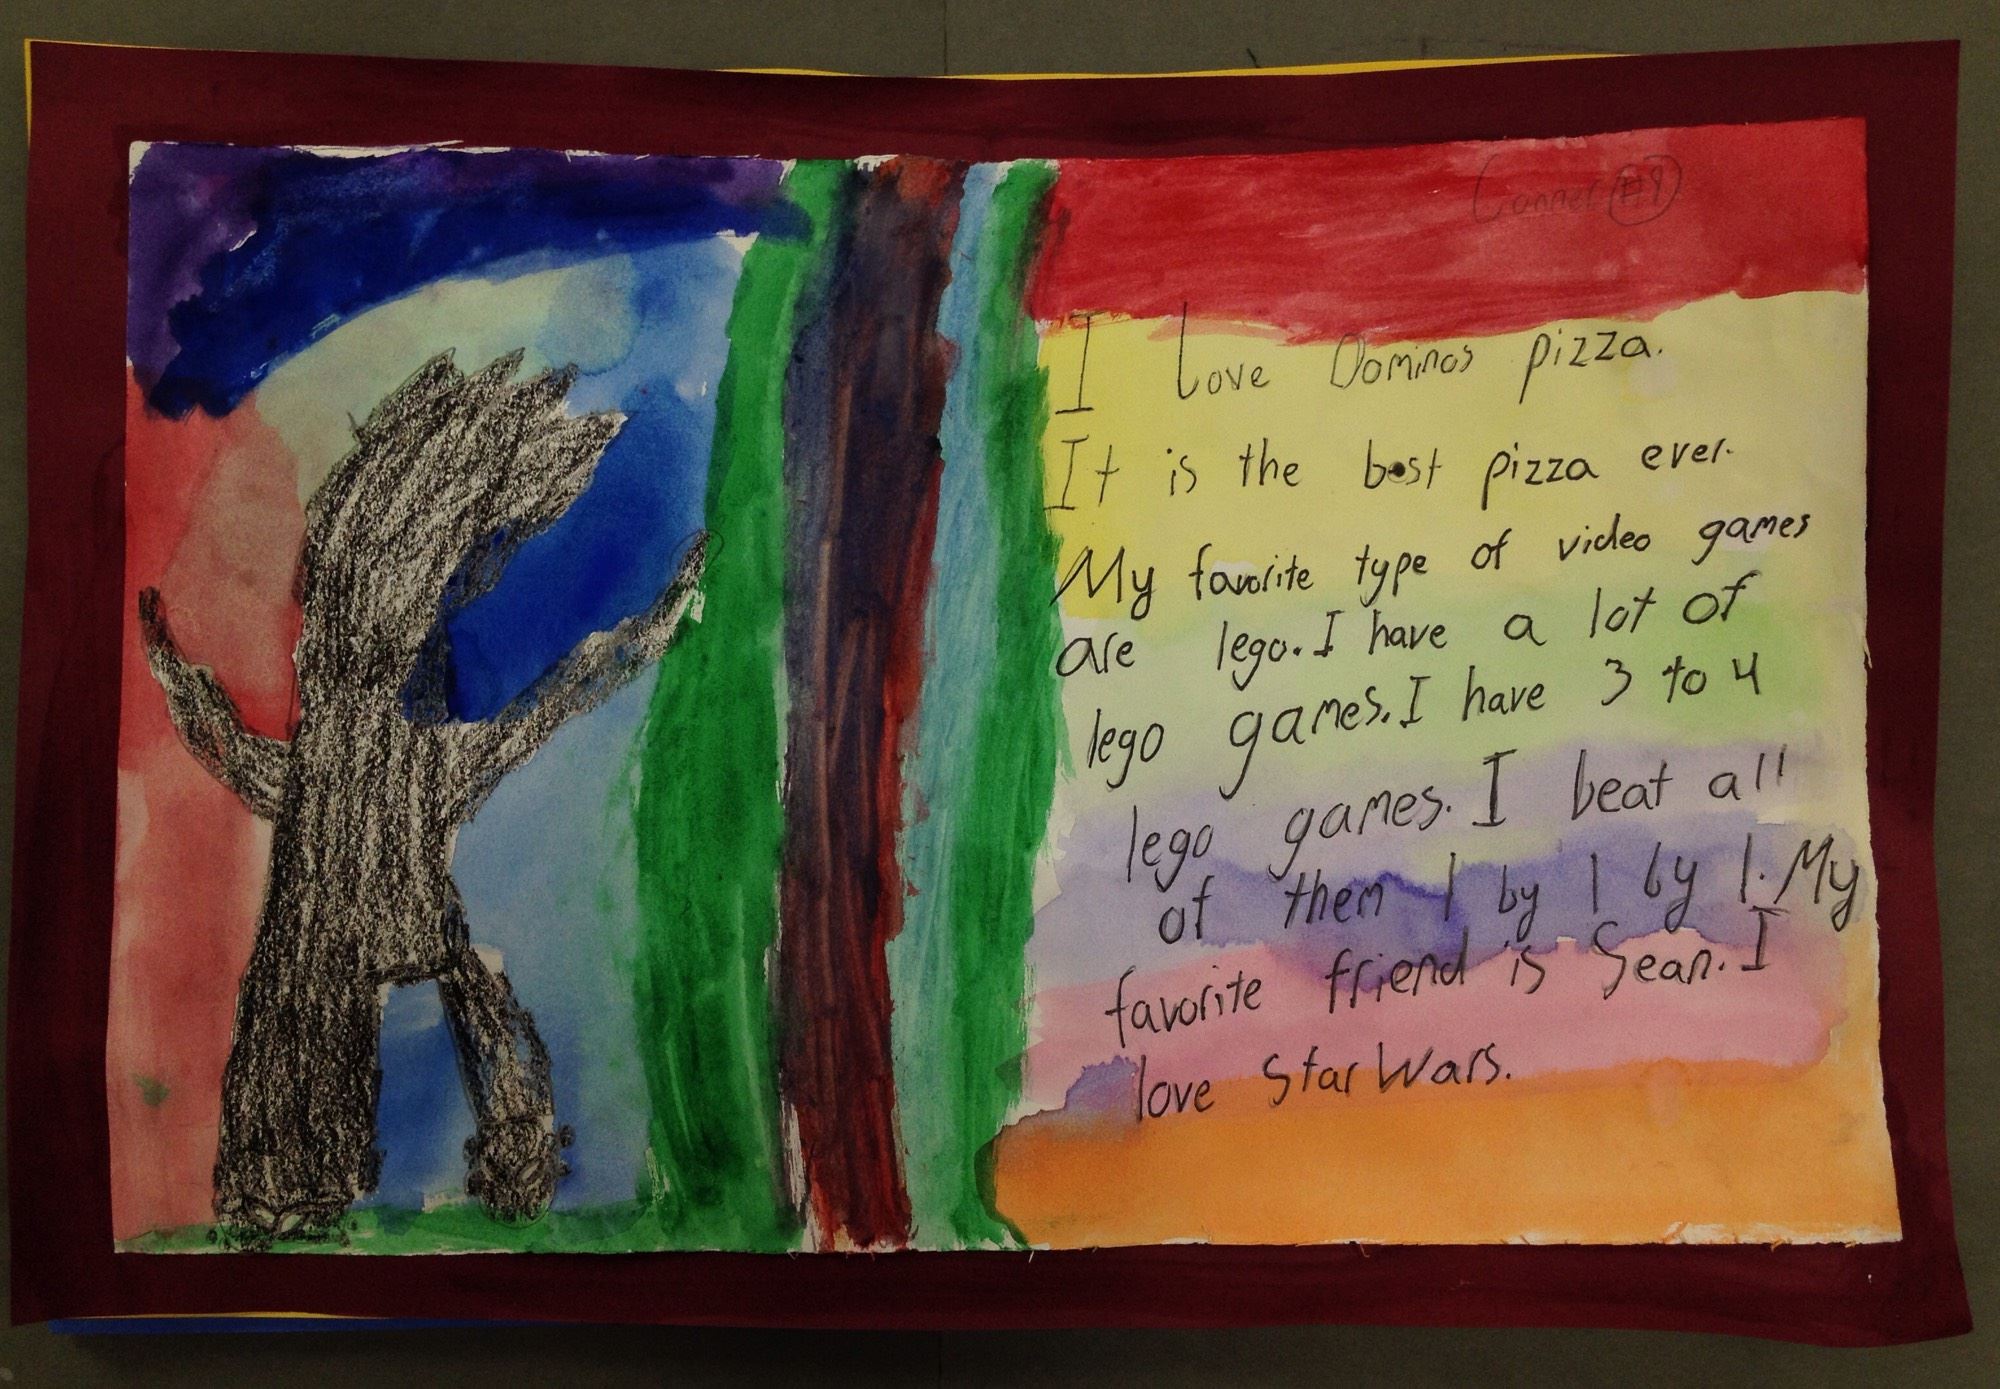 Conner #9
I love Dominos pizza.
It is the best pizza ever.
My favorite type of video games
are lego. I have a lot of
lego games. I have 3 to 4
lego games. I beat all
of them 1 by 1 by 1. My
favorite friend is Sean. I
love Star Wars.